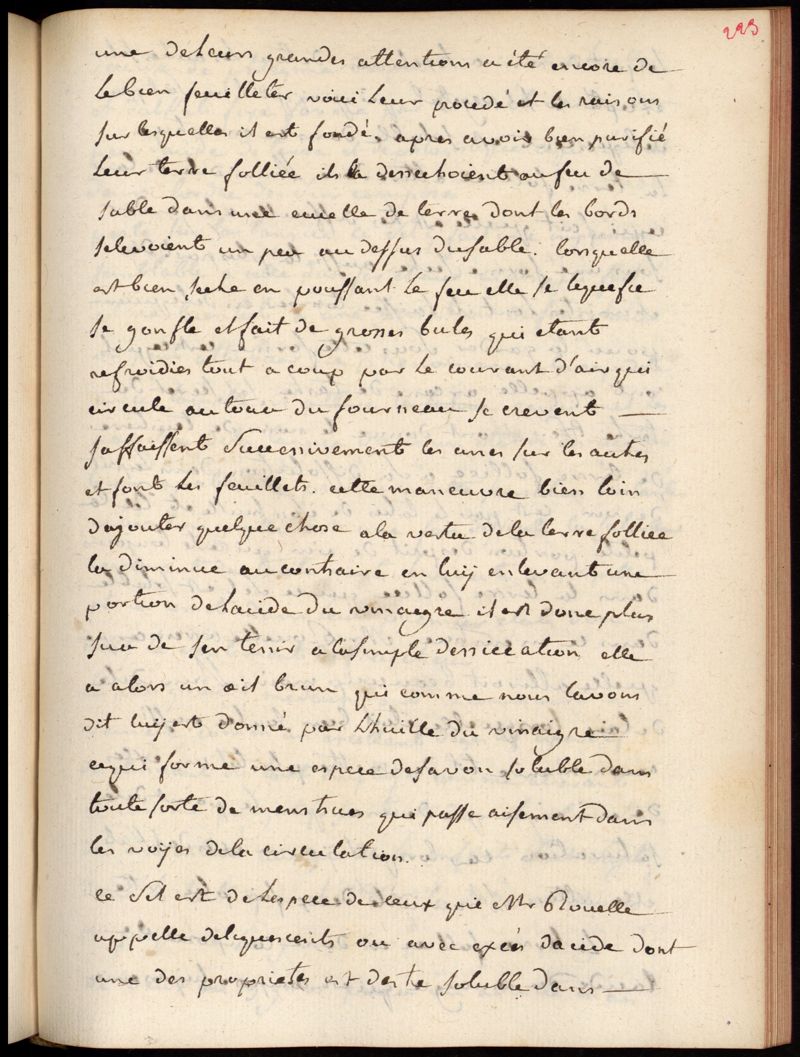 223
une de Leurs grandes attentions a été encore de
le bien feuilleter voici Leur procedé et les raisons
sur lesquelles il est fondé. apres avoir bien purifié
Leur terre folliée ils la dessechoient au feu de
sable dans une ecuelle de terre dont les bords
selevoient un peu au dessus du sable. lorsquelle
est bien seche en poussant Le feu elle se liquefie
se gonfle et fait de grosses bules qui etant
refroidies tout a coup par Le courant d'air qui
circule autour du fourneau se crevent
saffaissent Successivement les unes sur les autres
et font Les feuillets. cette manœuvre bien loin
dajouter quelque chose a la vertu de la terre folliée
la diminue au contraire en luy enlevant une
portion de Lacide du vinaigre il est donc plus
sur de sen tenir a la simple dessiccation elle
a alors un œil brun qui comme nous lavons
dit luy est donné par Lhuille du vinaigre
ce qui forme une espece de savon soluble dans
toute sorte de menstrues qui passe aisement dans
les voyes de la circulation.
ce Sel est de Lespece de ceux que Mr Rouelle
appelle deliquescents ou avec excés dacide dont
une des proprietés est detre soluble dans